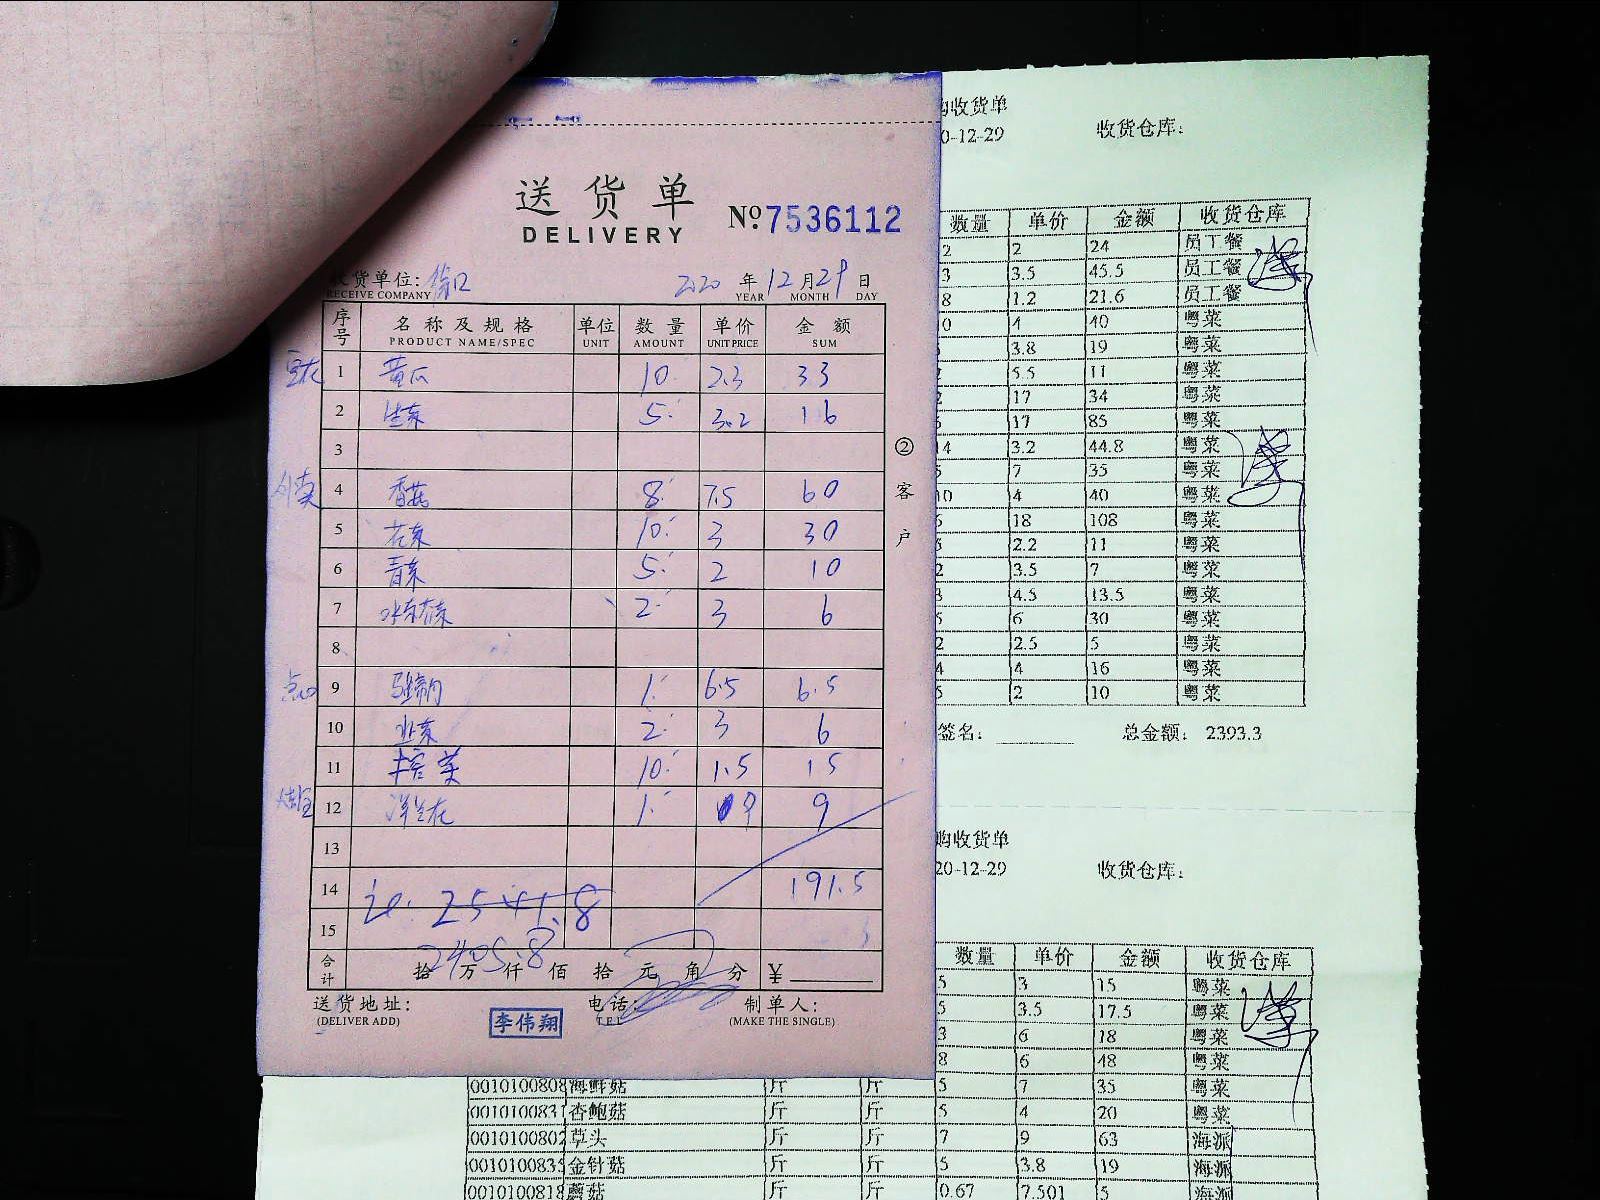 送货单
DELIVERY
№ 7536112
收货单位:
RECEIVE COMPANY
2020 年 12 月 29 日
YEAR MONTH DAY
序号 名称及规格 单位 数量 单价 金额
PRODUCT NAME/SPEC UNIT AMOUNT UNIT PRICE SUM
1 黄瓜 10 2.3 33
2 生菜 5 3.2 16
3
4 香菇 8 7.5 60
5 花菜 10 3 30
6 青菜 5 2 10
7 2 3 6
8
点心 9 马蹄肉 1 6.5 6.5
10 韭菜 2 3 6
11 10 1.5 15
12 洋兰花 1 9 9
13
14 2541.8 191.5
15
2405.8
合计 拾 万 仟 佰 拾 元 角 分 ¥
送货地址: 电话: 制单人:
(DELIVER ADD) TEL (MAKE THE SINGLE)
李伟翔
②客户
购收货单
0-12-29 收货仓库:
数量 单价 金额 收货仓库
2 2 24 员工餐
3 3.5 45.5 员工餐
8 1.2 21.6 员工餐
0 4 40 粤菜
3.8 19 粤菜
5.5 11 粤菜
2 17 34 粤菜
5 17 85 粤菜
4 3.2 44.8 粤菜
5 7 35 粤菜
10 4 40 粤菜
6 18 108 粤菜
5 2.2 11 粤菜
2 3.5 7 粤菜
3 4.5 13.5 粤菜
5 6 30 粤菜
2 2.5 5 粤菜
4 4 16 粤菜
5 2 10 粤菜
签名: 总金额: 2393.3
购收货单
20-12-29 收货仓库:
数量 单价 金额 收货仓库
5 3 15 粤菜
5 3.5 17.5 粤菜
3 6 18 粤菜
8 6 48 粤菜
0010100808 海鲜菇 斤 斤 5 7 35 粤菜
001010083 杏鲍菇 斤 斤 5 4 20 粤菜
0010100802 草头 斤 斤 7 9 63 海派
001010083 金针菇 斤 斤 5 3.8 19 海派
0010100818 蘑菇 斤 斤 0.67 7.501 5 海派